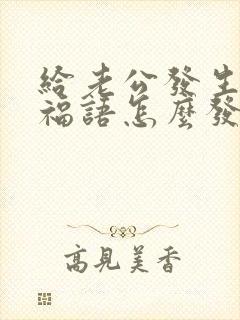 給老公發生
福語怎麼發
高見美香